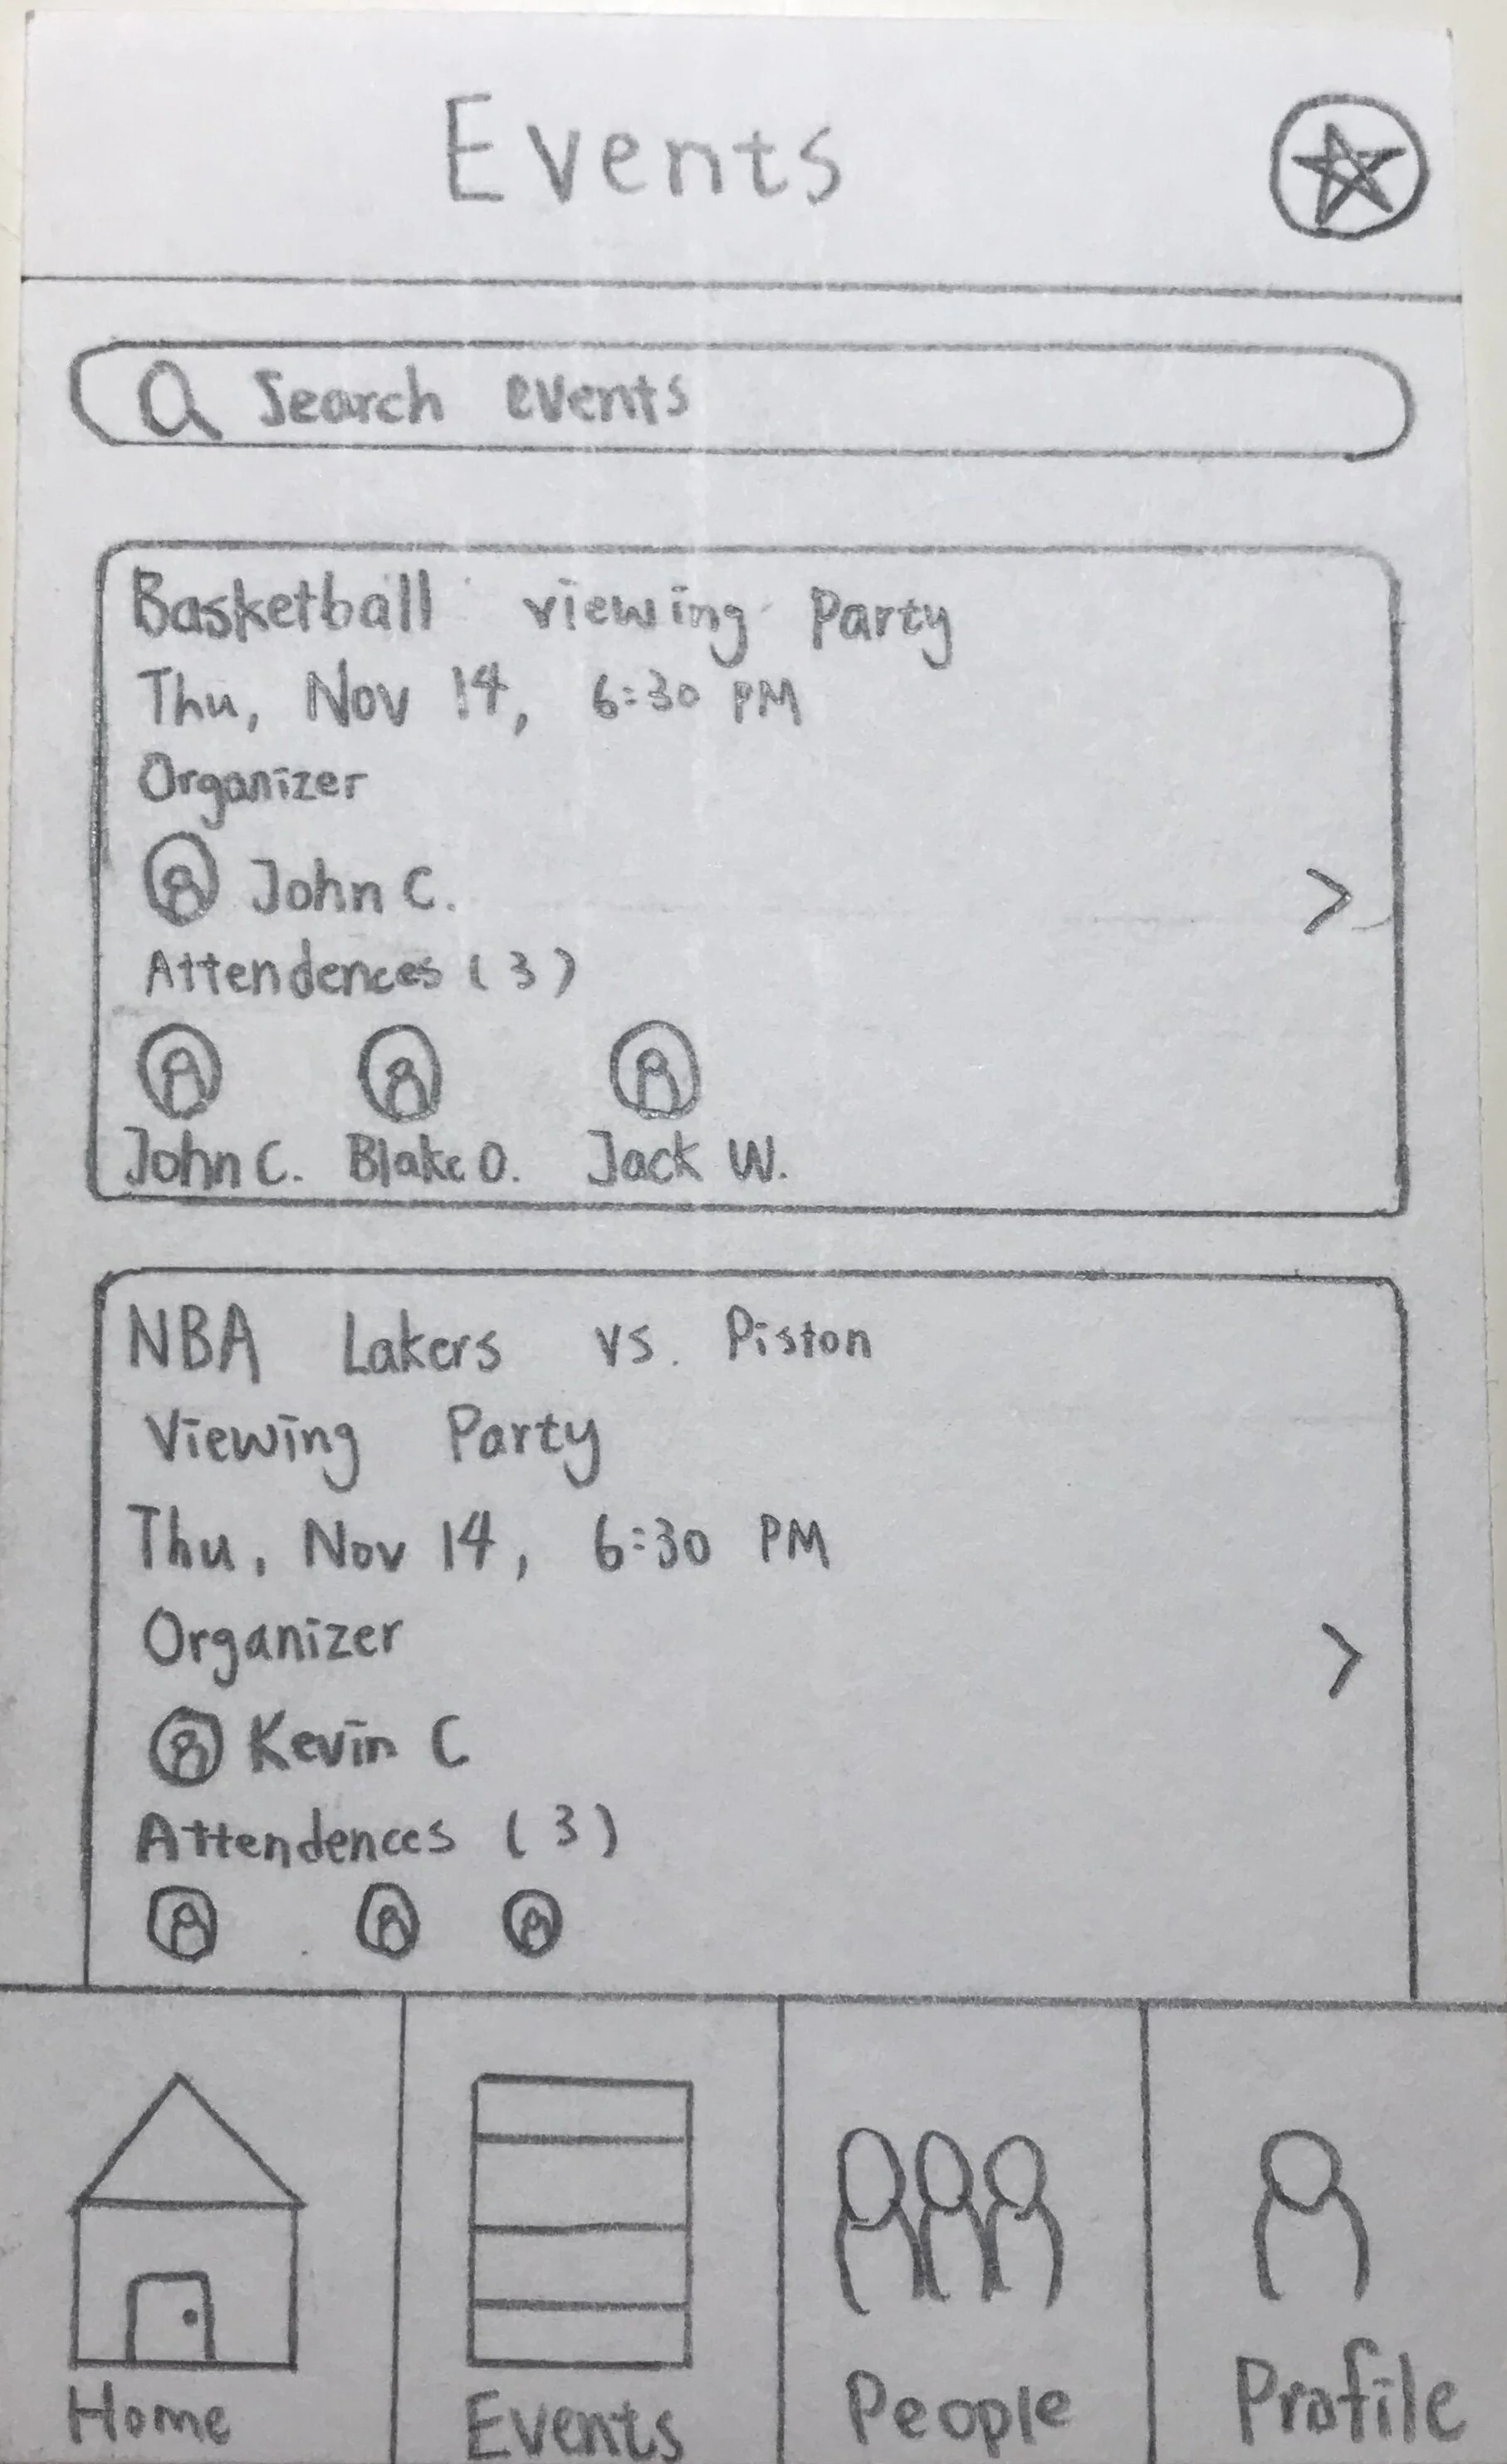 Events
Search events
Basketball viewing Party
Thu, Nov 14, 6:30 PM
Organizer
John C.
Attendences (3)
John C. Blake O. Jack W.
NBA Lakers vs. Piston
Viewing Party
Thu, Nov 14, 6:30 PM
Organizer
Kevin C
Attendences (3)
Home Events People Profile